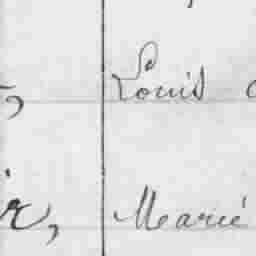 Louis
Marié